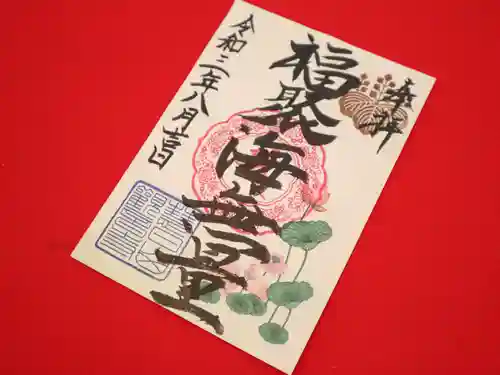 奉拝
福聚海無量
令和三年八月吉日